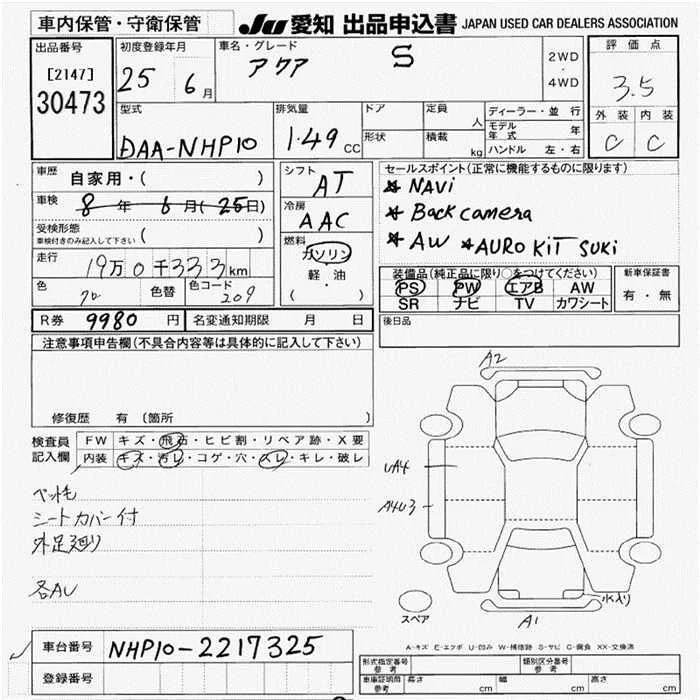 車内保管・守衛保管
JU 愛知 出品申込書 JAPAN USED CAR DEALERS ASSOCIATION
出品番号
[2147]
30473
初度登録年月
25 6月
車名・グレード
アクア S
2WD
・
4WD
評価点
3.5
外装 内装
C C
型式
DAA-NHP10
排気量
1.49 CC
ドア
形状
定員 人
積載 kg
ディーラー・並 行
モデル年式 年
ハンドル 左・右
車歴 自家用・( )
車検 8年 6月(25日)
受検形態
車検付きのみ記入して下さい ( )
走行 19万0千333km
色 色替 色コード 209
シフト
AT
冷房
AAC
燃料
ガソリン
軽・油
( )
セールスポイント(正常に機能するものに限ります)
★ NAVi
★ Back camera
★ AW ★AURO KiT SUKi
装備品(純正品に限り○をつけてください)
PS PW エアB AW
SR ナビ TV カワシート
新車保証書
有・無
R券 9980 円
名変通知期限 月 日
後日品
注意事項申告欄(不具合内容等は具体的に記入して下さい)
修復歴 有 (箇所 )
検査員
記入欄
FW キズ・飛石・ヒビ割・リペア跡・X要
内装 キズ・汚レ・コゲ・穴・スレ・キレ・破レ
ペットモ
シートカバー付
外足廻り
各AU
A2
UA4
A4U3
水入り
A1
スペア
A-キズ E-エクボ U-凹み W-補修跡 S-サビ C-腐食 XX-交換済
車台番号 NHP10-2217325
登録番号
形式指定番号
参考
類別区分番号
参考
車庫証明用
参考
長さ cm 幅 cm 高さ cm